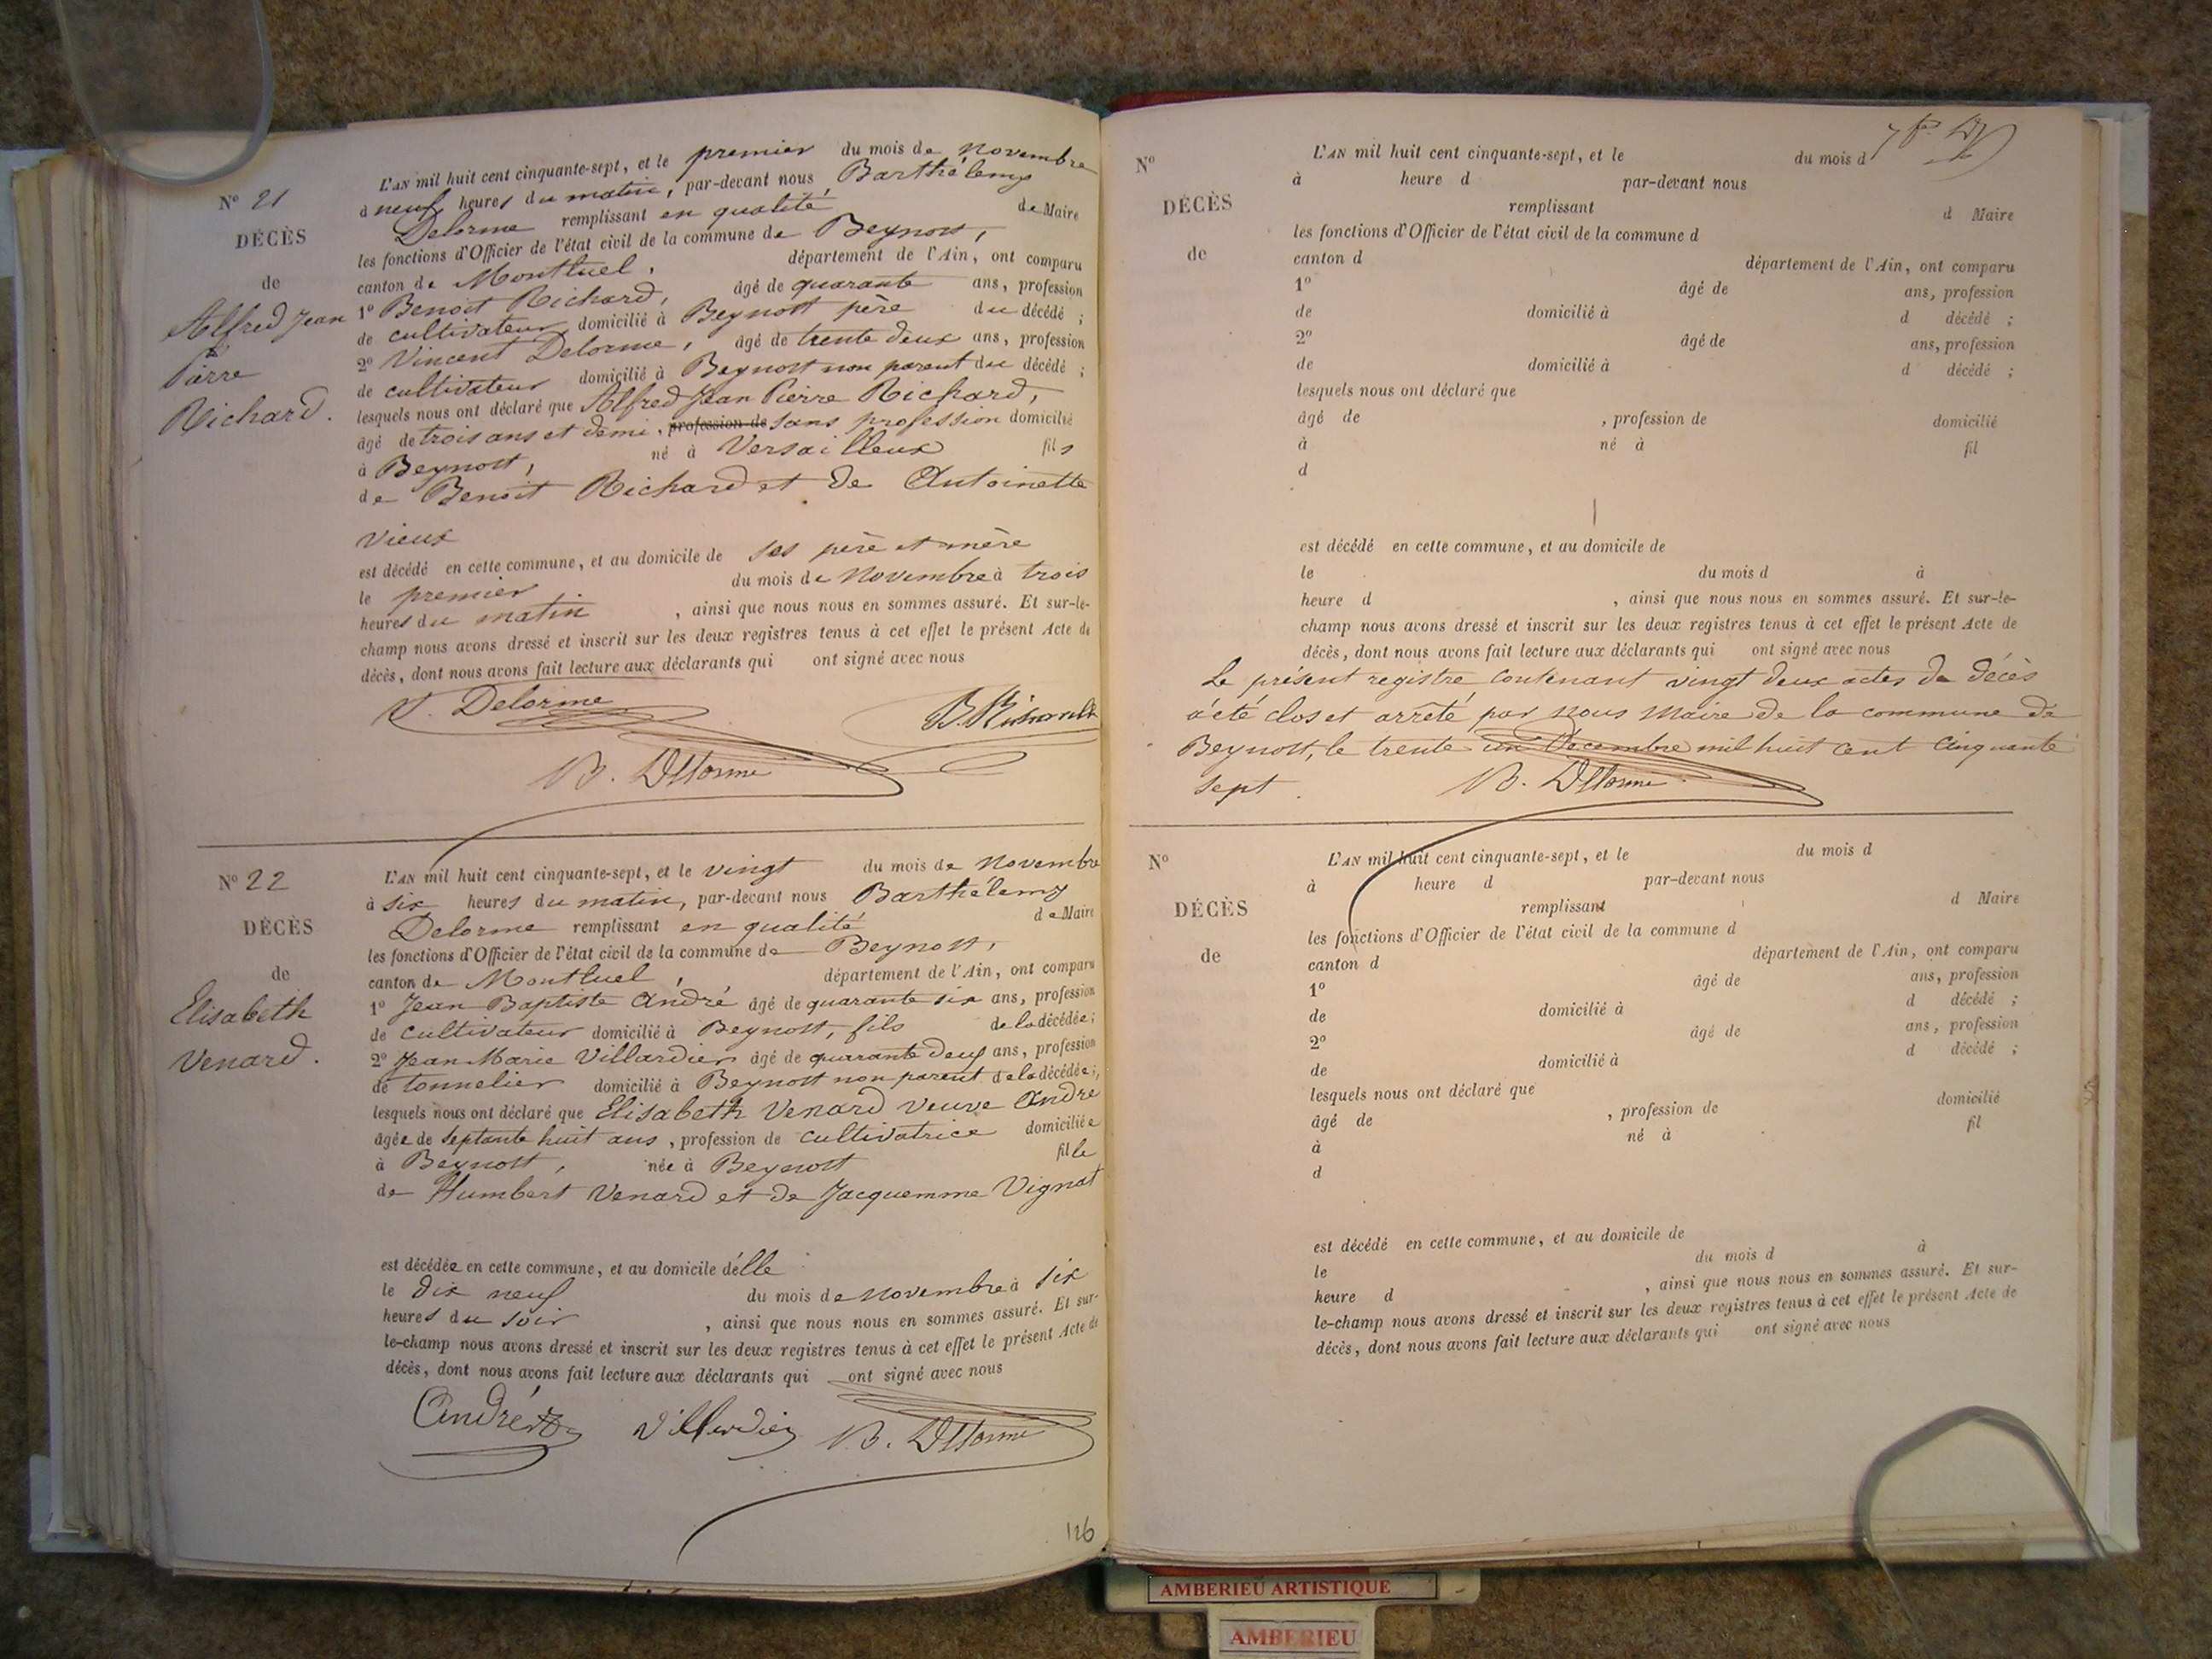 N° 21
DÉCÈS
de
Alfred Jean
Pierre
Richard.
L'AN mil huit cent cinquante-sept, et le premier du mois de novembre
à neuf heures du matin, par-devant nous Barthélemy
Delorme remplissant en qualité de Maire
les fonctions d'Officier de l'état civil de la commune de Beynost,
canton de Montluel, département de l'Ain, ont comparu
1° Benoit Richard, âgé de quarante ans, profession
de cultivateur domicilié à Beynost père du décédé ;
2° Vincent Delorme, âgé de trente deux ans, profession
de cultivateur domicilié à Beynost non parent du décédé ;
lesquels nous ont déclaré que Alfred Jean Pierre Richard,
âgé de trois ans et demi, profession de sans profession domicilié
à Beynost, né à Versailleux fils
de Benoit Richard et de Antoinette
Vieux
est décédé en cette commune, et au domicile de ses père et mère
le premier du mois de novembre à trois
heures du matin , ainsi que nous nous en sommes assuré. Et sur-le-
champ nous avons dressé et inscrit sur les deux registres tenus à cet effet le présent Acte de
décès, dont nous avons fait lecture aux déclarants qui ont signé avec nous
V. Delorme B. Richard
B. Delorme
N° 22
DÉCÈS
de
Elisabeth
Venard.
L'AN mil huit cent cinquante-sept, et le vingt du mois de novembre
à six heures du matin, par-devant nous Barthélemy
Delorme remplissant en qualité de Maire
les fonctions d'Officier de l'état civil de la commune de Beynost,
canton de Montluel, département de l'Ain, ont comparu
1° Jean Baptiste André âgé de quarante six ans, profession
de cultivateur domicilié à Beynost, fils de la décédée ;
2° Jean Marie Villardier âgé de quarante deux ans, profession
de tonnelier domicilié à Beynost non parent de la décédée ;
lesquels nous ont déclaré que Elisabeth Venard veuve André
âgée de septante huit ans, profession de cultivatrice domiciliée
à Beynost, née à Beynost fille
de Humbert Venard et de Jacquemme Vignat
est décédée en cette commune, et au domicile d'elle
le dix neuf du mois de novembre à six
heures du soir , ainsi que nous nous en sommes assuré. Et sur-
le-champ nous avons dressé et inscrit sur les deux registres tenus à cet effet le présent Acte de
décès, dont nous avons fait lecture aux déclarants qui ont signé avec nous
André Villardier B. Delorme
126
N°
DÉCÈS
de
L'AN mil huit cent cinquante-sept, et le du mois d
à heure d par-devant nous
remplissant d Maire
les fonctions d'Officier de l'état civil de la commune d
canton d département de l'Ain, ont comparu
1° âgé de ans, profession
de domicilié à d décédé ;
2° âgé de ans, profession
de domicilié à d décédé ;
lesquels nous ont déclaré que
âgé de , profession de domicilié
à né à fil
d
est décédé en cette commune, et au domicile de
le du mois d à
heure d , ainsi que nous nous en sommes assuré. Et sur-le-
champ nous avons dressé et inscrit sur les deux registres tenus à cet effet le présent Acte de
décès, dont nous avons fait lecture aux déclarants qui ont signé avec nous
Le présent registre, contenant vingt deux actes de décès
a été clos et arrêté par nous Maire de la commune de
Beynost, le trente un Décembre mil huit cent cinquante
sept. B. Delorme
N°
DÉCÈS
de
L'AN mil huit cent cinquante-sept, et le du mois d
à heure d par-devant nous
remplissant d Maire
les fonctions d'Officier de l'état civil de la commune d
canton d département de l'Ain, ont comparu
1° âgé de ans, profession
de domicilié à d décédé ;
2° âgé de ans, profession
de domicilié à d décédé ;
lesquels nous ont déclaré que
âgé de , profession de domicilié
à né à fil
d
est décédé en cette commune, et au domicile de
le du mois d à
heure d , ainsi que nous nous en sommes assuré. Et sur-
le-champ nous avons dressé et inscrit sur les deux registres tenus à cet effet le présent Acte de
décès, dont nous avons fait lecture aux déclarants qui ont signé avec nous
AMBERIEU ARTISTIQUE
AMBERIEU